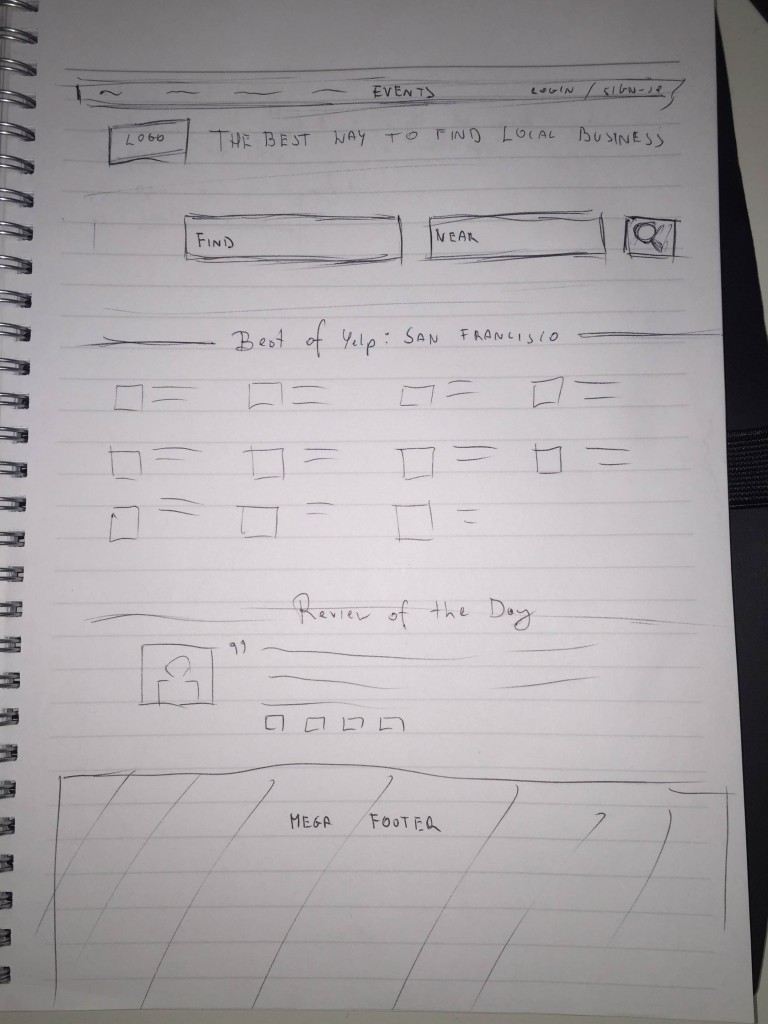 EVENTS LOGIN / SIGN-UP
LOGO THE BEST WAY TO FIND LOCAL BUSINESS
FIND NEAR
Best of Yelp: SAN FRANCISCO
Review of the Day
"
MEGA FOOTER